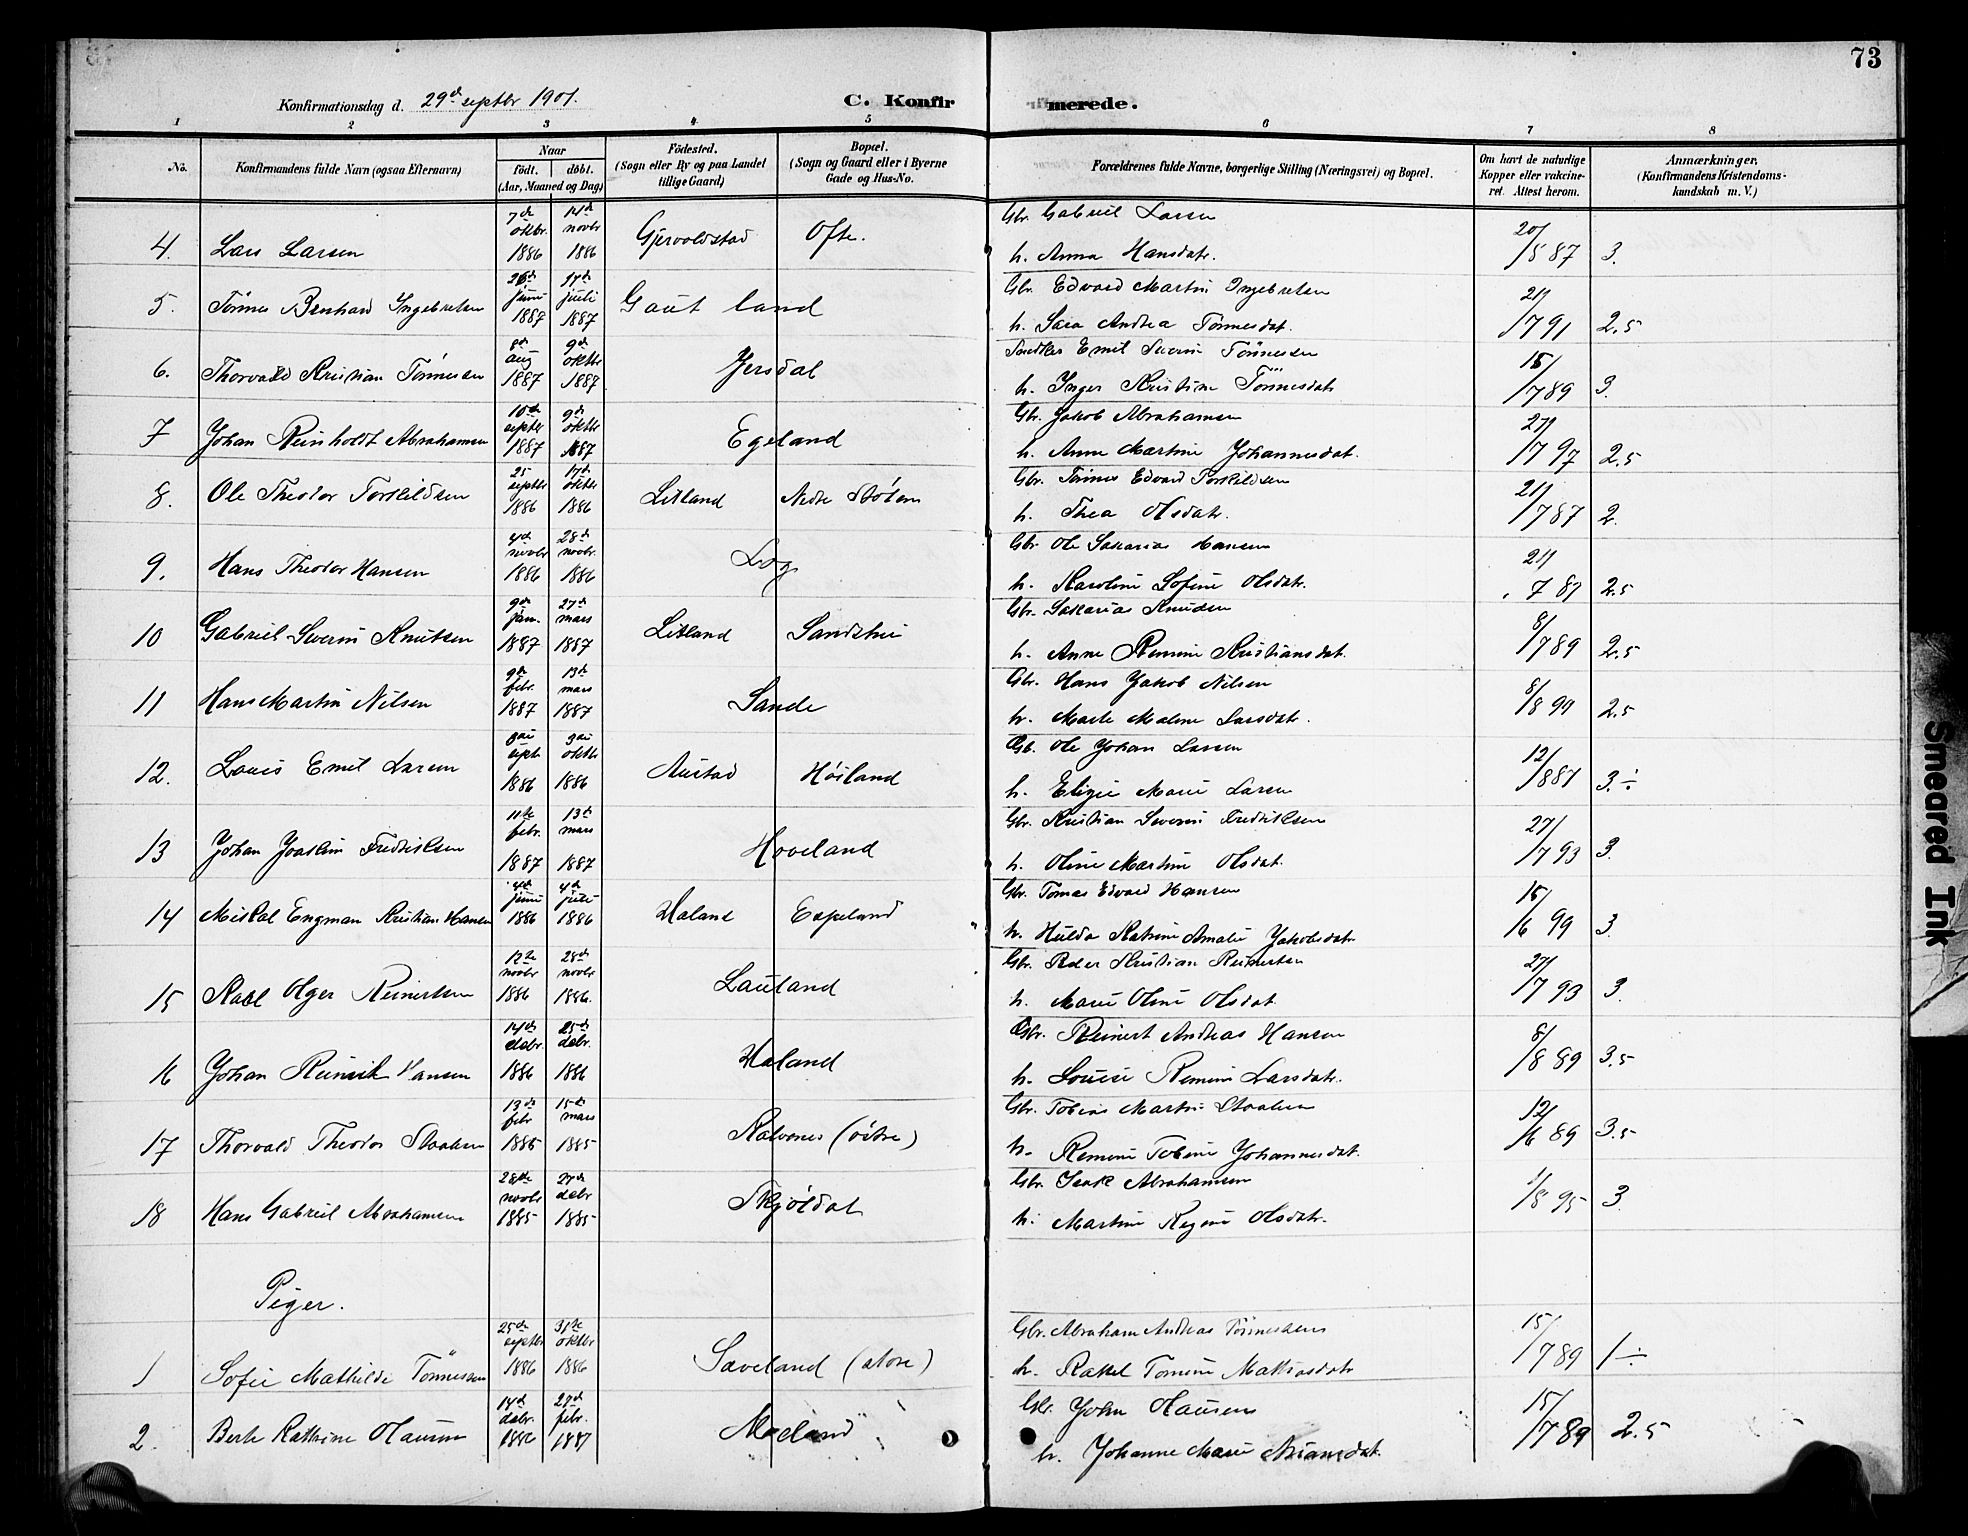 73
Konfirmationsdag d. 29d septbr 1901.
C. Konfirmerede.
1 2 3 4 5 6 7 8
No.
Konfirmandens fulde Navn (ogsaa Efternavn)
Naar
födt. döbt.
(Aar, Maaned og Dag)
Födested.
(Sogn eller By og paa Landet
tillige Gaard)
Bopæl.
(Sogn og Gaard eller i Byerne
Gade og Hus-No.
Forældrenes fulde Navne, borgerlige Stilling (Næringsvei) og Bopæl.
Om havt de naturlige
Kopper eller vakcine-
ret. Attest herom.
Anmærkninger.
(Konfirmandens Kristendoms-
kundskab m. V.)
4. Lars Larsen 7de oktbr. 1886 14de novbr 1886 Gjervoldstad Ofte. Gbr. Gabriel Larsen
h. Anna Hansdatr. 20/5 87 3.
5. Tönnes Benhard Ingebretsen 26de juni 1887 17de juli 1887 Gautland Gbr. Edvard Martin Ingebretsen
h. Sara Andrea Tønnesdat. 21/7 91 2.5
6. Thorvald Kristian Tönnessen 8de aug 1887 9de oktbr 1887 Jersdal Emil Severin Tönnessen
h. Inger Kristine Tönnesdatr 15/7 89 3.
7 Johan Reinholdt Abrahamsen 10de septbr 1887 9de oktbr 1887 Egeland Gbr. Jakob Abrahamsen
h. Anne Martine Johannesdat. 27/7 97 2.5
8. Ole Theodor Torkildsen 25 septbr 1886 17de oktbr 1886 Litland Nedre Stölen Gbr. Tönnes Edvard Torkildsen
h. Thea Olsdatr. 21/7 87 2.
9. Hans Theodor Hansen 4de novbr 1886 28de novbr. 1886 Log Gbr. Ole Sakarias Hansen
h. Karoline Sofine Olsdatr. 21/7 87 2.5
10 Gabriel Severin Knutsen 9de jan. 1887 27de mars 1887 Litland Gbr. Sakarias Knudsen
h. Anne Remine Kristiansdat. 8/7 89 2.5
11 Hans Martin Nilsen 9de febr. 1887 13de mars 1887 Sande Gbr. Hans Jakob Nilsen
h. Marte Malene Larsdatr. 8/8 99 2.5
12. Louis Emil Larsen sept. 1886 oktbr 1886 Austad Höiland Gb. Ole Johan Larsen
h. Marie Larsen 12/8 87 3.÷
13 Johan Joakim Fredriksen 11te febr. 1887 13de mars 1887 Hoveland Gbr. Kristian Severin Fredriksen
h. Oline Martine Olsdat. 27/7 93 3.
14 Mikal Engman Kristian Hansen 4de juni 1886 4de juli 1886 Haland Espeland Gbr. Tomas Edvard Hansen
h. Hulda Katrine Amalie Jakobsdatr 15/6 99 3.
15 Karl Olger Reinertsen 12te novbr 1886 28de novbr 1886. Lauland Gbr. Peder Kristian Reinertsen
h. Marie Oline Olsdat. 27/7 93 3.
16 Johan Reinrik Hansen 14de debr. 1886 25de debr. 1886 Haland Gbr. Reinert Andreas Hansen
h. Louise Remine Larsdatr. 8/8 89 3.5
17 Thorvald Theodor Staalesen 13de febr 1885 15de mars 1885 Kalvenes (östre) Gbr. Tobias Martin Staalesen
h. Remine Tobine Johannesdat. 12/6 89 3.5
18 Hans Gabriel Abrahamsen 28de novbr 1885 27de debr 1885 Skjöldal Gbr. Isak Abrahamsen
h. Martine Regine Olsdatr. 1/8 95 3.
Piger.
1 Sofie Mathilde Tönnessen 25de septbr 1886 31te oktbr 1886 Sæveland (store) Gbr. Abraham Andreas Tönnessen
h. Rakel Tomine Mattiasdatr 15/7 89 1÷
2. Berte Kathrine Hansen 14de debr. 1886 27de febr. 1887 Mæland Gbr. John Hansen
h. Johanne Marie 15/7 89 2.5
Smeared Ink